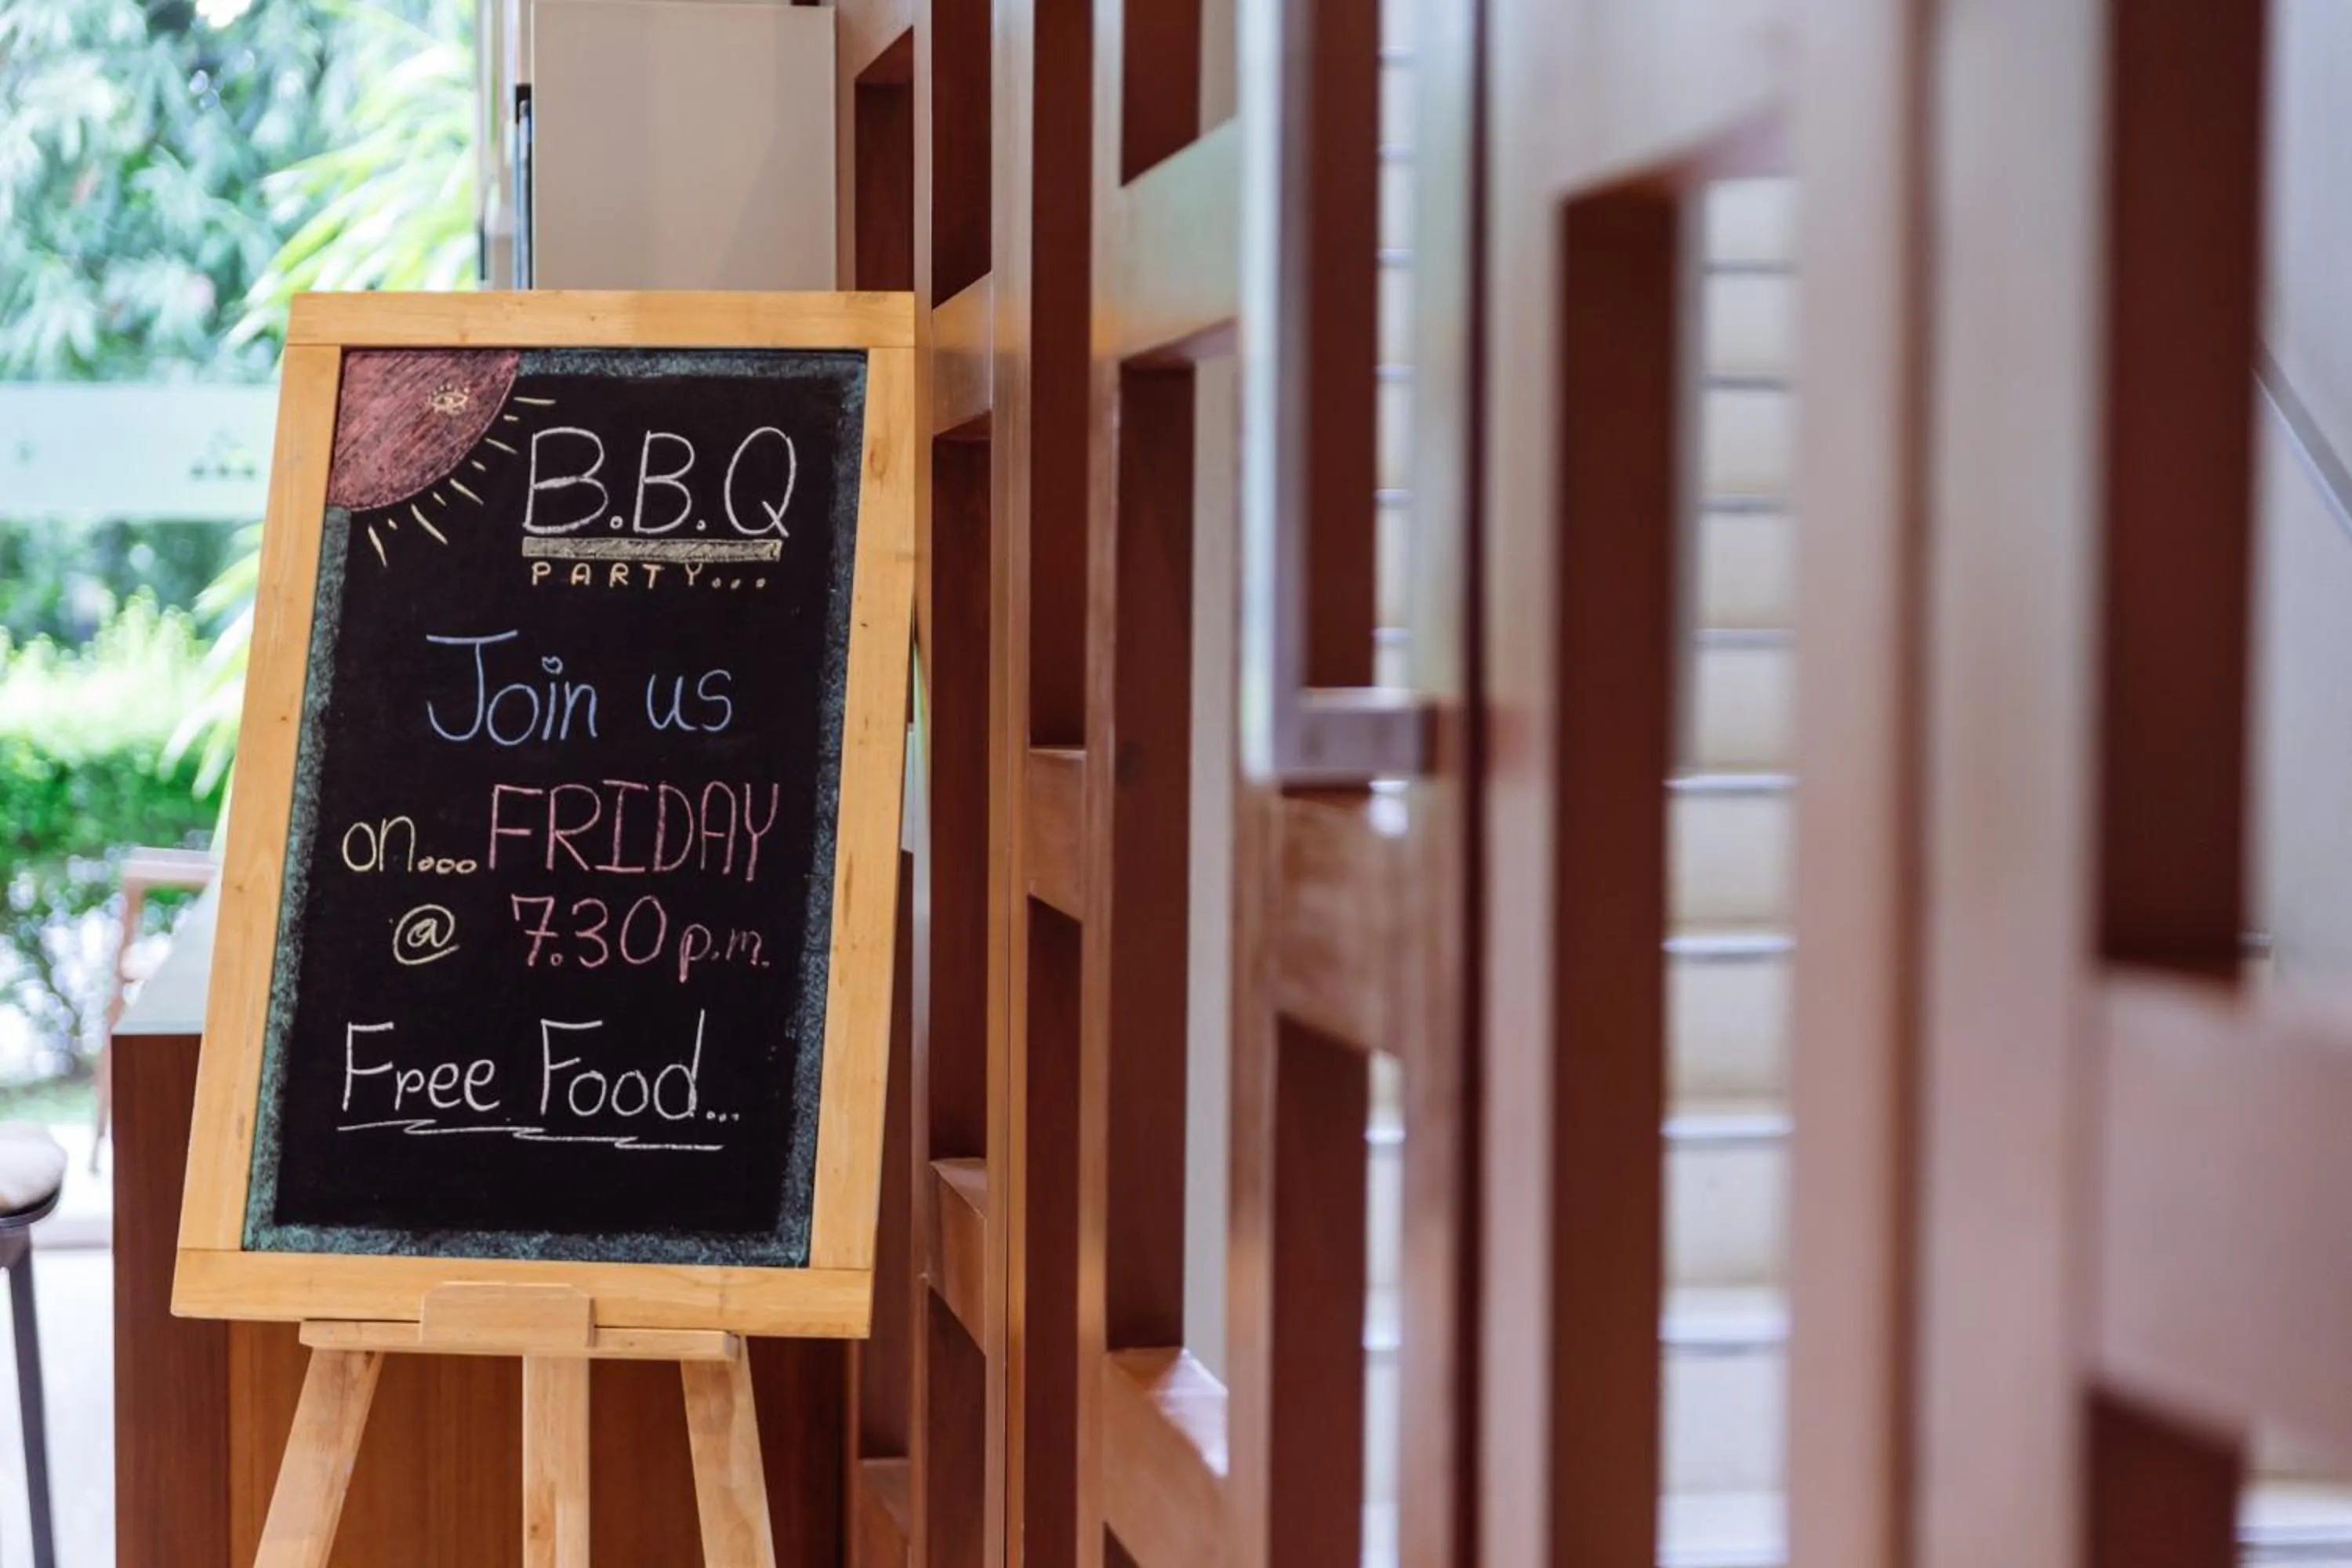 B.B.Q
PARTY...
Join us
on... FRIDAY
@ 7.30 p.m.
Free Food...